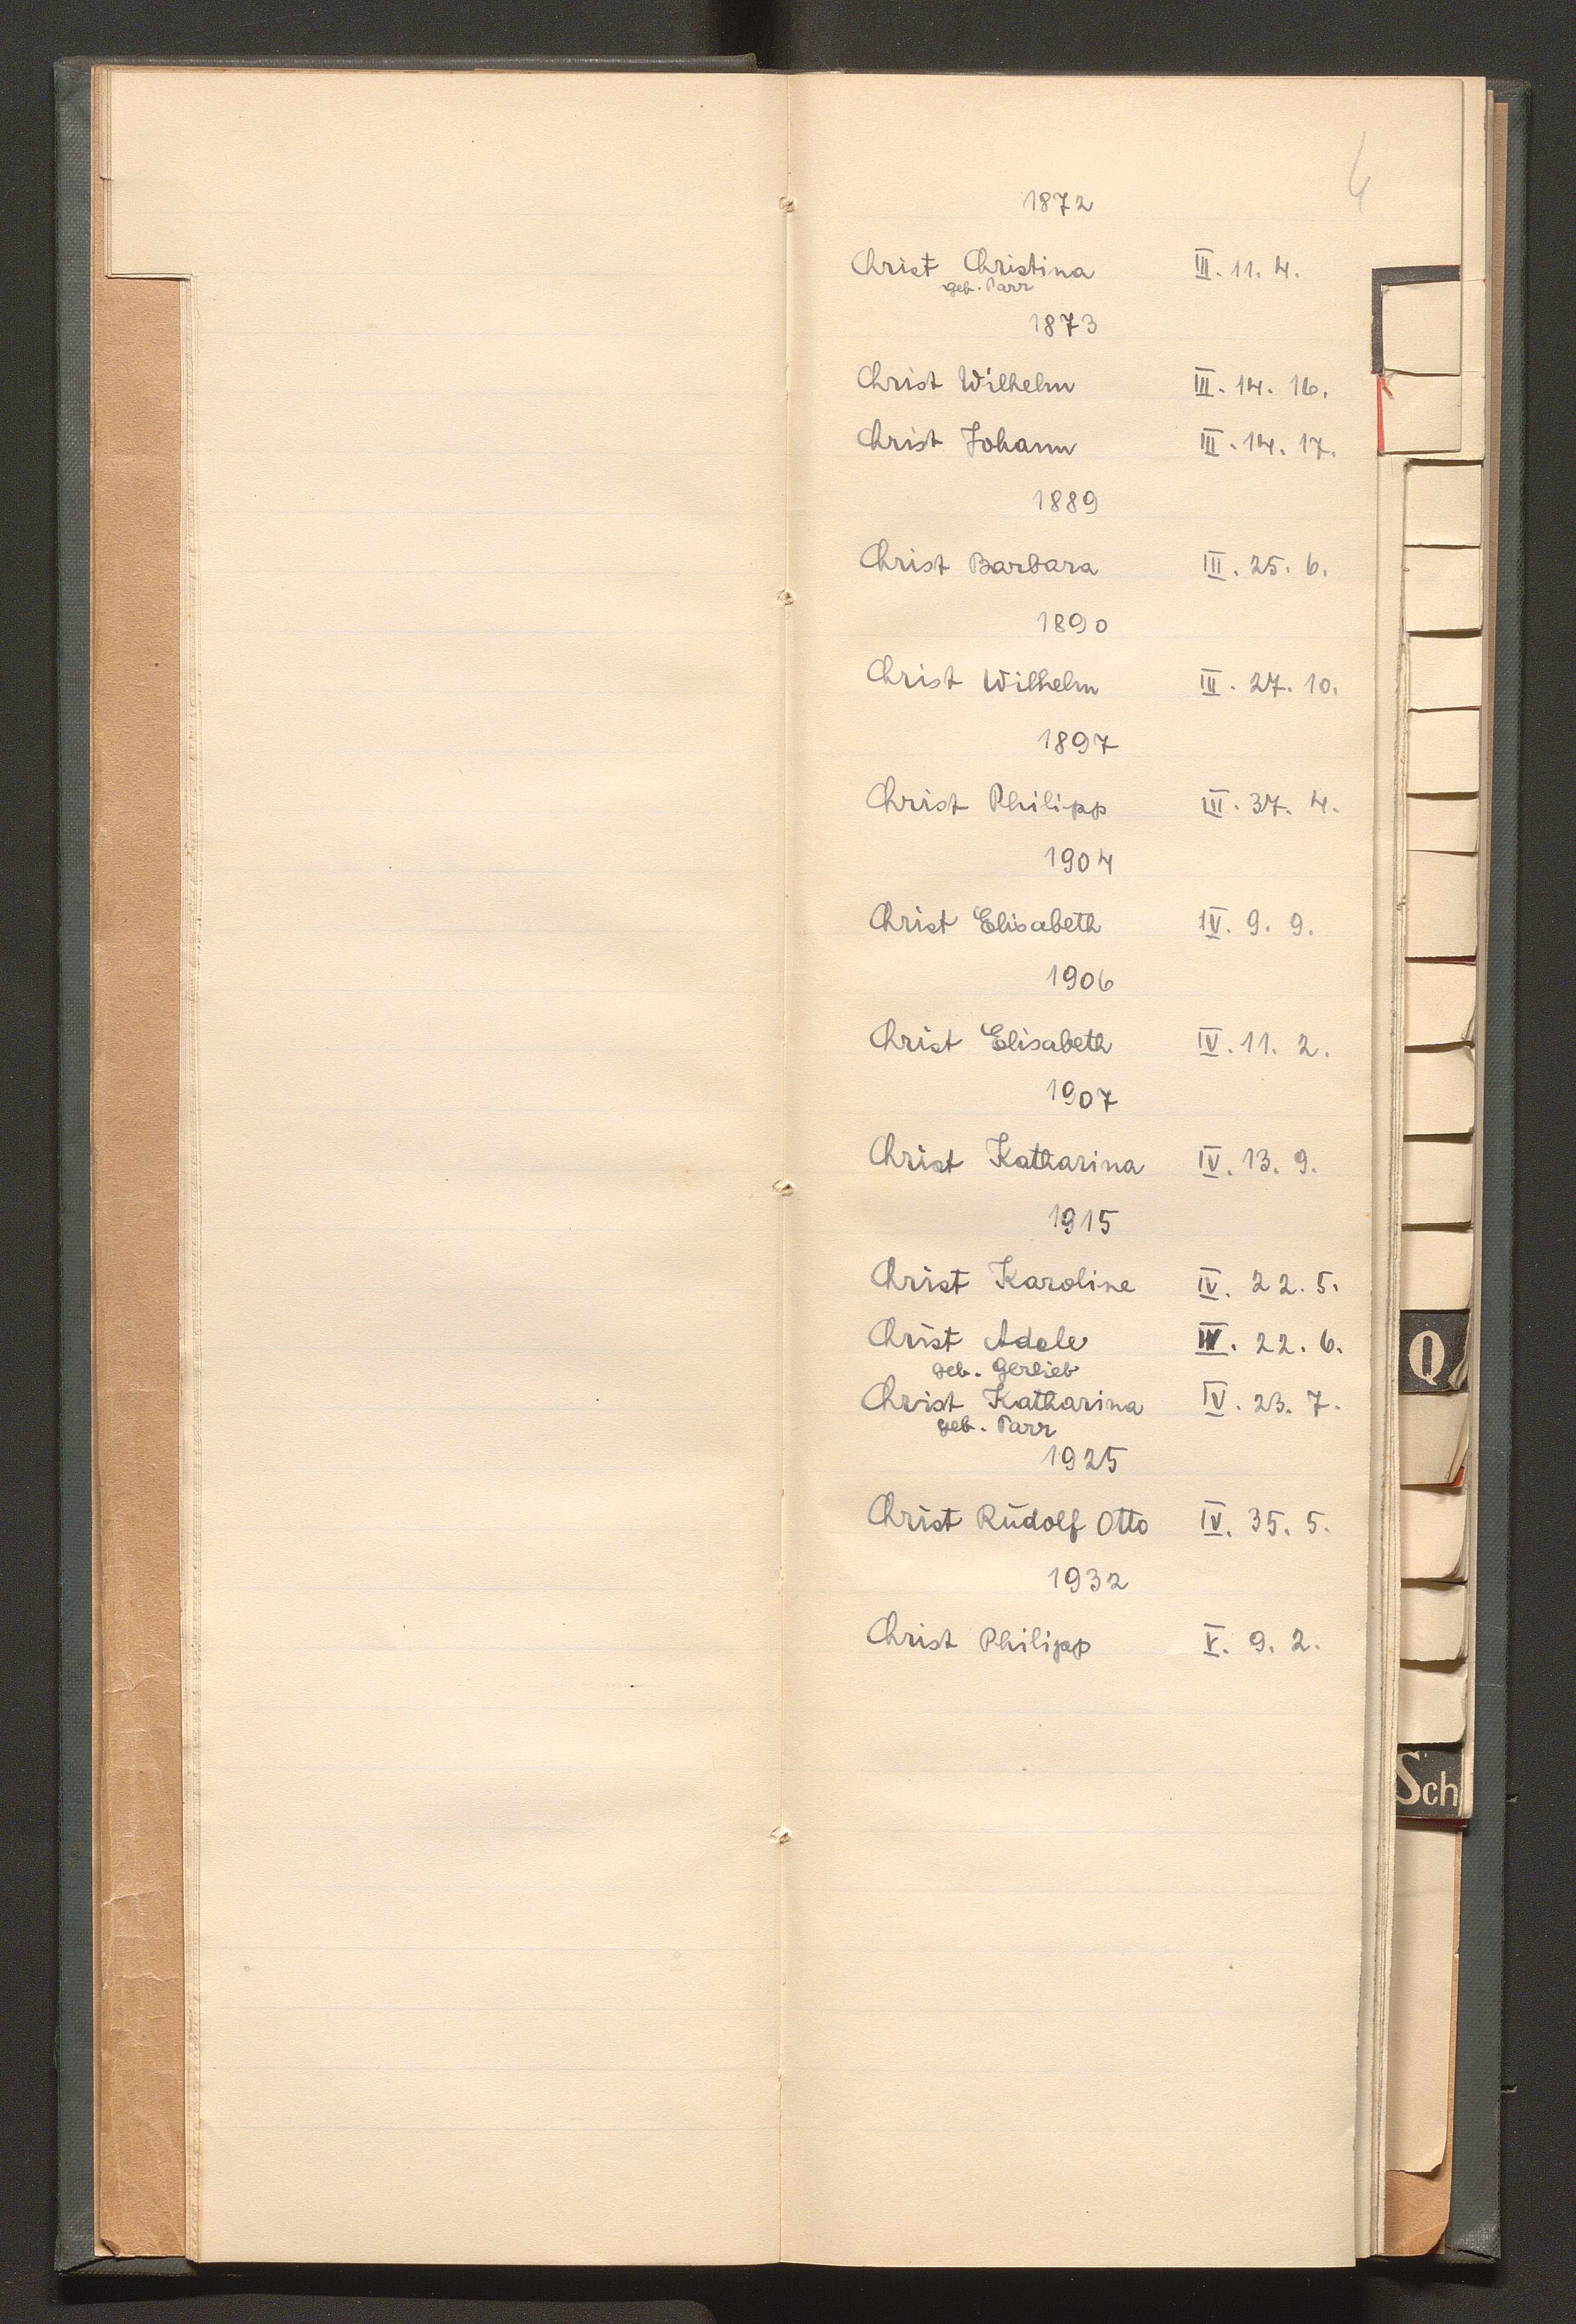 4
1872
Christ Christina III. 11. 4.
geb. Parr
1873
Christ Wilhelm III. 14. 16.
Christ Johann III. 14. 17.
1889
Christ Barbara III. 25. 6.
1890
Christ Wilhelm III. 27. 10.
1897
Christ Philipp III. 37. 4.
1904
Christ Elisabeth IV. 9. 9.
1906
Christ Elisabeth IV. 11. 2.
1907
Christ Katharina IV. 13. 9.
1915
Christ Karoline IV. 22. 5.
Christ Adele IV. 22. 6.
geb. Gerlieb
Christ Katharina IV. 23. 7.
geb. Parr
1925
Christ Rudolf Otto IV. 35. 5.
1932
Christ Philipp V. 9. 2.
Q
Sch